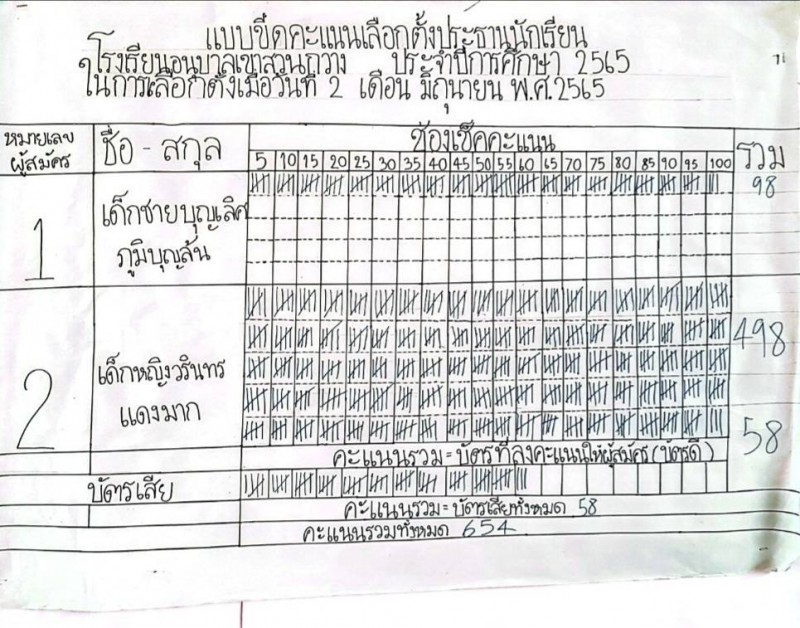 แบบขีดคะแนนเลือกตั้งประธานนักเรียน
โรงเรียนอนุบาลเขาสวนกวาง ประจำปีการศึกษา 2565
ในการเลือกตั้งเมื่อวันที่ 2 เดือน มิถุนายน พ.ศ.2565
หมายเลข
ผู้สมัคร
ชื่อ - สกุล
ช่องเช็คคะแนน
5 10 15 20 25 30 35 40 45 50 55 60 65 70 75 80 85 90 95 100
รวม
1
เด็กชายบุญเลิศ
ภูมิบุญล้น
98
2
เด็กหญิงวรินทร
แดงมาก
498
58
คะแนนรวม = บัตรที่ลงคะแนนให้ผู้สมัคร (บัตรดี)
บัตรเสีย
คะแนนรวม = บัตรเสียทั้งหมด 58
คะแนนรวมทั้งหมด 654